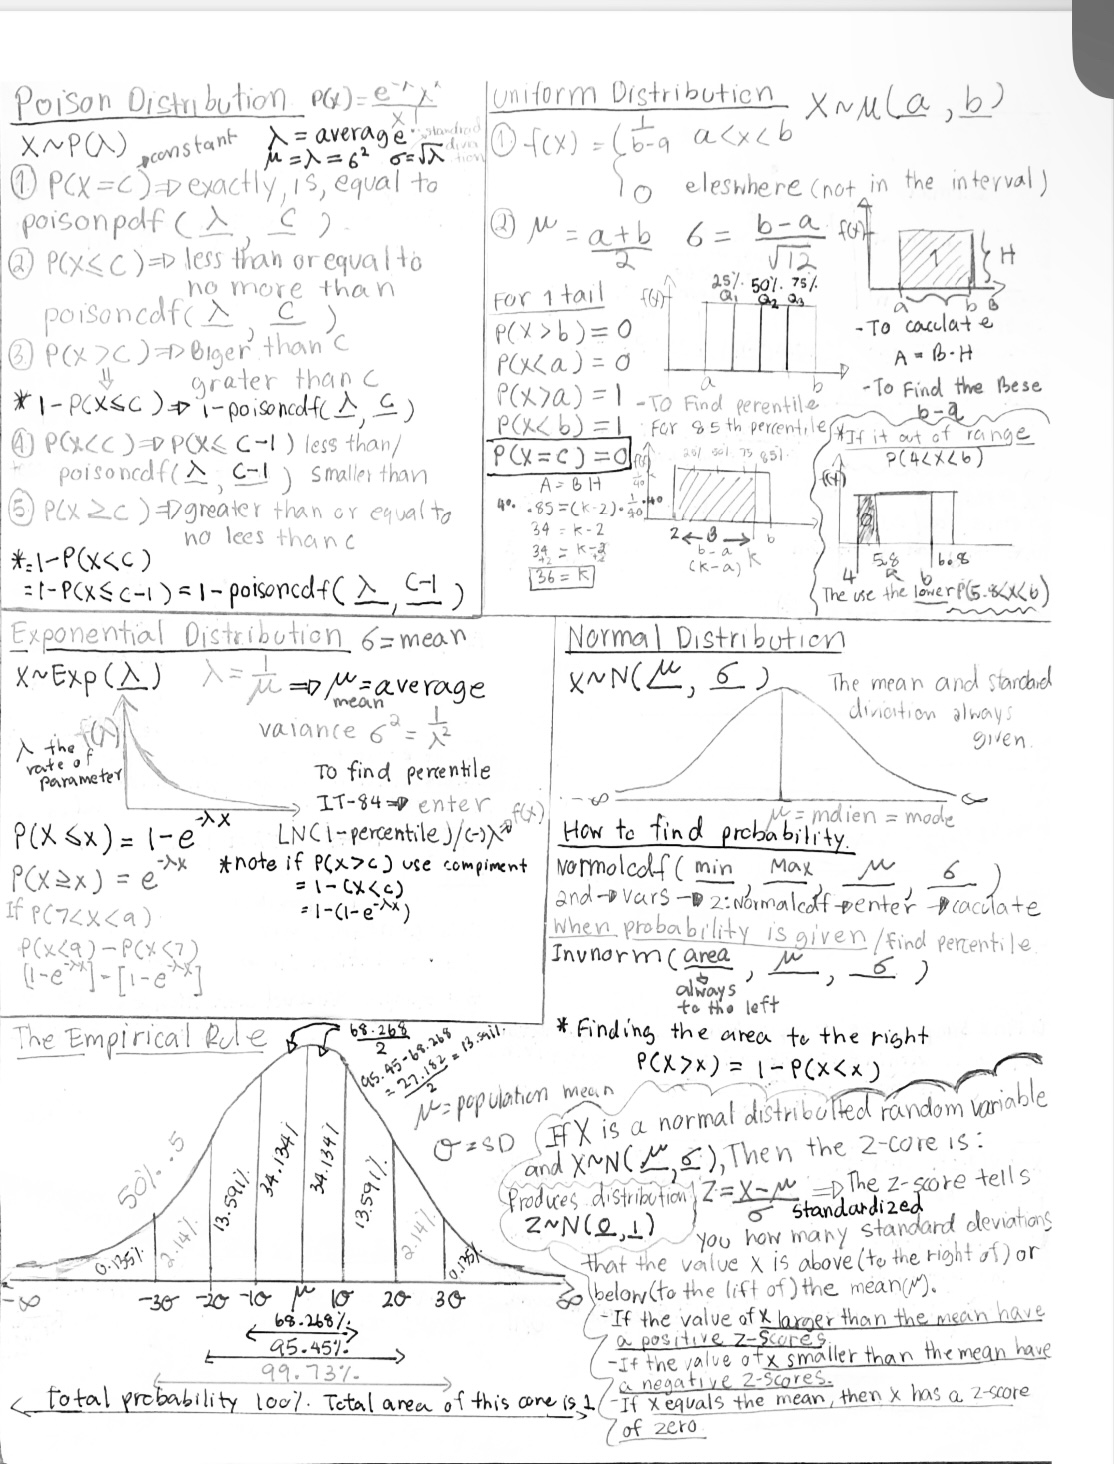 Poison Distribution P(x)=e^-λ λ^x / x!
X~P(λ) →constant λ = average
μ = λ = 6² σ=√λ
① P(X=C)=> exactly, is, equal to
poisonpdf (λ, C)
② P(X≤C)=> less than or equal to
no more than
poisoncdf(λ, C)
③ P(X>C)=> Biger than C
grater than C
* 1-P(X≤C)=> 1-poisoncdf(λ, C)
④ P(X<C)=> P(X≤C-1) less than/
poisoncdf(λ, C-1) smaller than
⑤ P(X≥C)=> greater than or equal to
no lees than C
*=1-P(X<C)
=1-P(X≤C-1)=1-poisoncdf(λ, C-1)
Uniform Distribution X~μ(a, b)
① f(x) = { 1/b-a a<x<b
0 eleswhere (not in the interval)
② μ = a+b/2 6 = b-a/√12
f(x)
1
H
a b B
For 1 tail
P(X>b)=0
P(X<a)=0
P(X>a)=1
P(X<b)=1
P(X=C)=0
f(x)
25% 50% 75%
Q1 Q2 Q3
a b
-To caculate
A = B·H
-To Find the Bese
b-a
-To Find perentile
For 85th percentile
A=BH
40. .85=(k-2)·1/40·40
34 = k-2
34 = k-2
+2 +2
36=k
f(x)
1/40
25% 50% 75 85%
2←B→ b
b-a k
(k-a)
*If it out of range
P(4<X<6)
f(x)
4 5.8 6 16.8
The use the lower P(5.8<X<6)
Exponential Distribution 6=mean
X~Exp(λ) λ=1/μ => μ=average
mean
variance 6²=1/λ²
f(x)
λ the
rate of
parameter
To find percentile
IT-84=> enter
LN(1-percentile)/(-)λ
f(x)
P(X≤x) = 1-e^-λx
P(X≥x) = e^-λx
*note if P(X>c) use compiment
=1-(X<c)
=1-(1-e^-λx)
If P(7<X<9)
P(X<9)-P(X<7)
[1-e^-λx]-[1-e^-λx]
Normal Distribution
X~N(μ, 6)
The mean and standard
divicition always
given.
-∞ ∞
μ=mdien=mode
How to find probability.
Normolcdf (min, Max, μ, 6)
2nd→vars→2:Normalcdf→enter→caculate
When probability is given/find percentile
Invnorm(area, μ, 6)
always
to the left
* Finding the area to the right
P(X>x) = 1-P(X<x)
The Empirical Rule
68.268/2
95.45-68.268
=27.182/2=13.591%
μ=population mean
σ=SD
50% .5
0.135% 2.14% 13.591% 34.134% 34.134% 13.591% 2.14% 0.135%
-∞ -3σ -2σ -1σ μ 1σ 2σ 3σ ∞
68.268%
95.45%
99.73%
Total probability 100%. Total area of this cone is 1
If X is a normal distributted random variable
and X~N(μ, σ), Then the Z-core is:
Produces distribution Z=X-μ/σ => The z-score tells
Z~N(0,1) standardized
you how many standard deviations
that the value X is above (to the right of) or
below (to the lift of) the mean(μ).
-If the value of X larger than the mean have
a positive Z-Scores.
-If the value of x smaller than the mean have
a negative Z-scores.
-If X equals the mean, then x has a z-score
of zero.